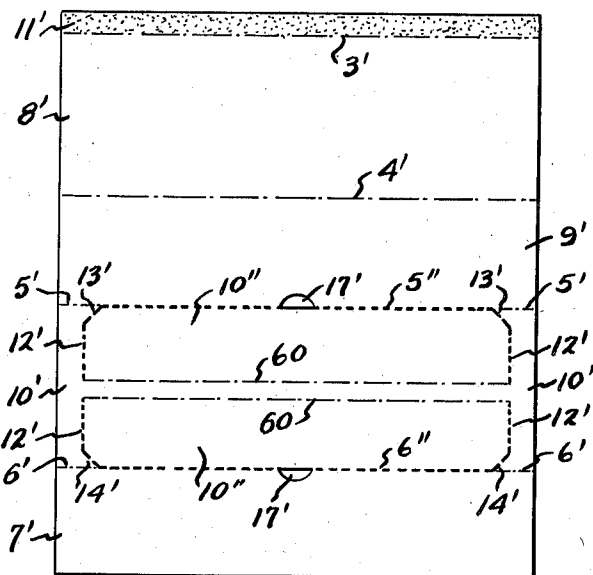 11'
3'
8'
4'
9'
5' 13' 10" 17' 5" 13' 5'
12' 60 12'
10' 10'
12' 60 12'
6' 14' 10" 17' 6" 14' 6'
7'